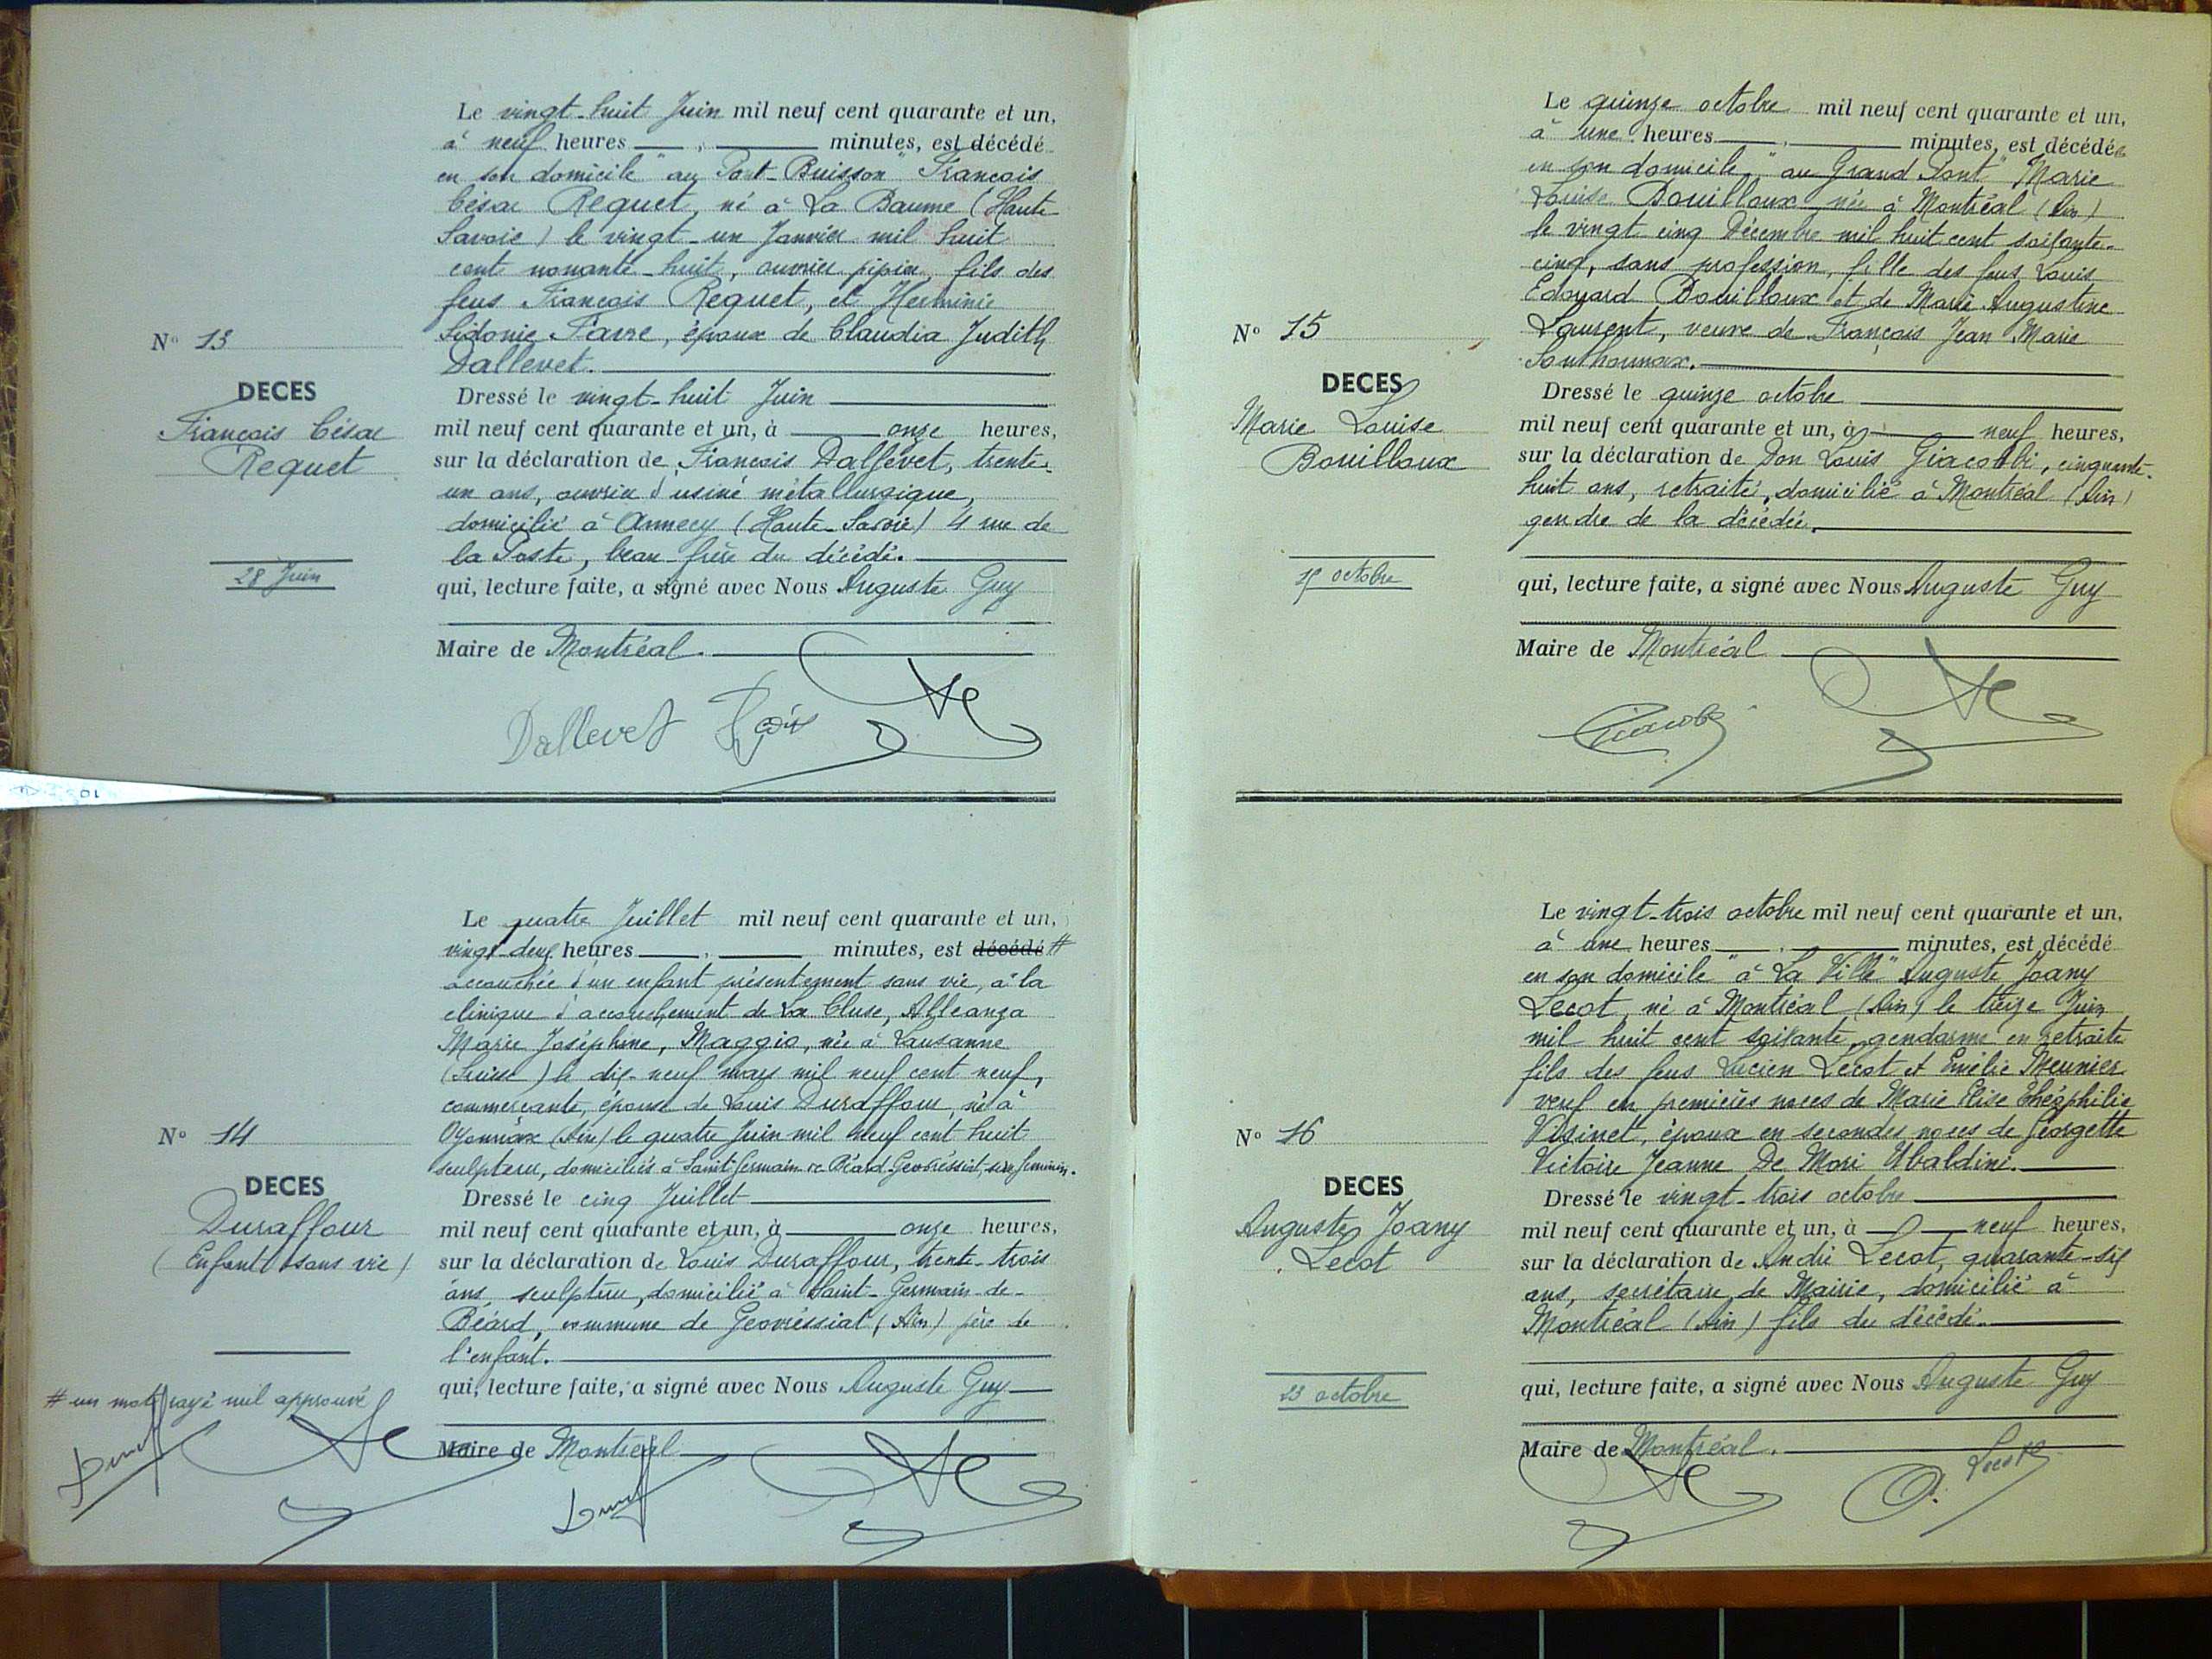 N° 13
DECES
François César
Requet
28 Juin
Le vingt-huit Juin mil neuf cent quarante et un,
à neuf heures , minutes, est décédé
en son domicile "au Pont-Buisson" François
César Requet, né à La Baume (Haute
Savoie) le vingt-un Janvier mil huit
cent nonante-huit, ouvrier pipier, fils des
feus François Requet, et Herminie
Sidonie Favre, époux de Claudia Judith
Dallevet.
Dressé le vingt-huit Juin
mil neuf cent quarante et un, à onze heures,
sur la déclaration de François Dallevet, trente-
un ans, ouvrier d'usine métallurgique,
domicilié à Annecy (Haute-Savoie) 4 rue de
la Poste, beau-frère du décédé.
qui, lecture faite, a signé avec Nous Auguste Guy
Maire de Montréal.
Dallevet Fçois
N° 14
DECES
Duraffour
(Enfant sans vie)
# un mot rayé nul approuvé
Le quatre Juillet mil neuf cent quarante et un,
vingt-deux heures , minutes, est décédé #
accouchée d'un enfant présentement sans vie, à la
clinique d'accouchement de La Cluse, Alleanza
Marie Joséphine, Maggio, née à Lausanne
(Suisse) le dix-neuf mars mil neuf cent neuf,
commerçante, épouse de Louis Duraffour, né à
Oyonnax (Ain) le quatre Juin mil neuf cent huit
sculpteur, domiciliés à Saint-Germain de Béard Geovressiat, sexe féminin.
Dressé le cinq Juillet
mil neuf cent quarante et un, à onze heures,
sur la déclaration de Louis Duraffour, trente-trois
ans, sculpteur, domicilié à Saint-Germain-de-
Béard, commune de Geovréssiat (Ain) père de
l'enfant.
qui, lecture faite, a signé avec Nous Auguste Guy
Maire de Montréal
N° 15
DECES
Marie Louise
Bouilloux
15 octobre
Le quinze octobre mil neuf cent quarante et un,
à une heures , minutes, est décédée
en son domicile, "au Grand Pont" Marie
Louise Bouilloux née à Montréal (Ain)
le vingt cinq Décembre mil huit cent soixante-
cinq, sans profession, fille des feus Louis
Edouard Bouilloux et de Marie Augustine
Laurent, veuve de François Jean Marie
Sonthonnax.
Dressé le quinze octobre
mil neuf cent quarante et un, à neuf heures,
sur la déclaration de Don Louis Giacobbi, cinquante-
huit ans, retraité, domicilié à Montréal (Ain)
gendre de la décédée.
qui, lecture faite, a signé avec Nous Auguste Guy
Maire de Montréal
Giacobbi
N° 16
DECES
Auguste Joany
Lecot
23 octobre
Le vingt-trois octobre mil neuf cent quarante et un,
à une heures , minutes, est décédé
en son domicile "à La Ville" Auguste Joany
Lecot, né à Montréal (Ain) le treize Juin
mil huit cent soixante, gendarme en retraite
fils des feus Lucien Lecot et Emélie Meunier
veuf en premières noces de Marie Elise Théophilie
Visinet, époux en secondes noces de Georgette
Victoire Jeanne De Mori Ubaldini.
Dressé le vingt-trois octobre
mil neuf cent quarante et un, à neuf heures,
sur la déclaration de André Lecot, quarante-six
ans, secrétaire de Mairie, domicilié à
Montréal (Ain) fils du décédé.
qui, lecture faite, a signé avec Nous Auguste Guy
Maire de Montréal.
A. Lecot